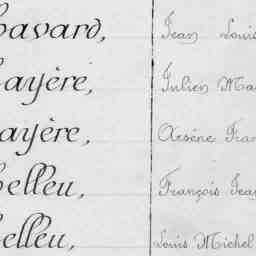 bavard, Jean Louis
ayère, Julien Ma
ayère, Arsène Fran
elleu, François Jea
elleu, Louis Michel